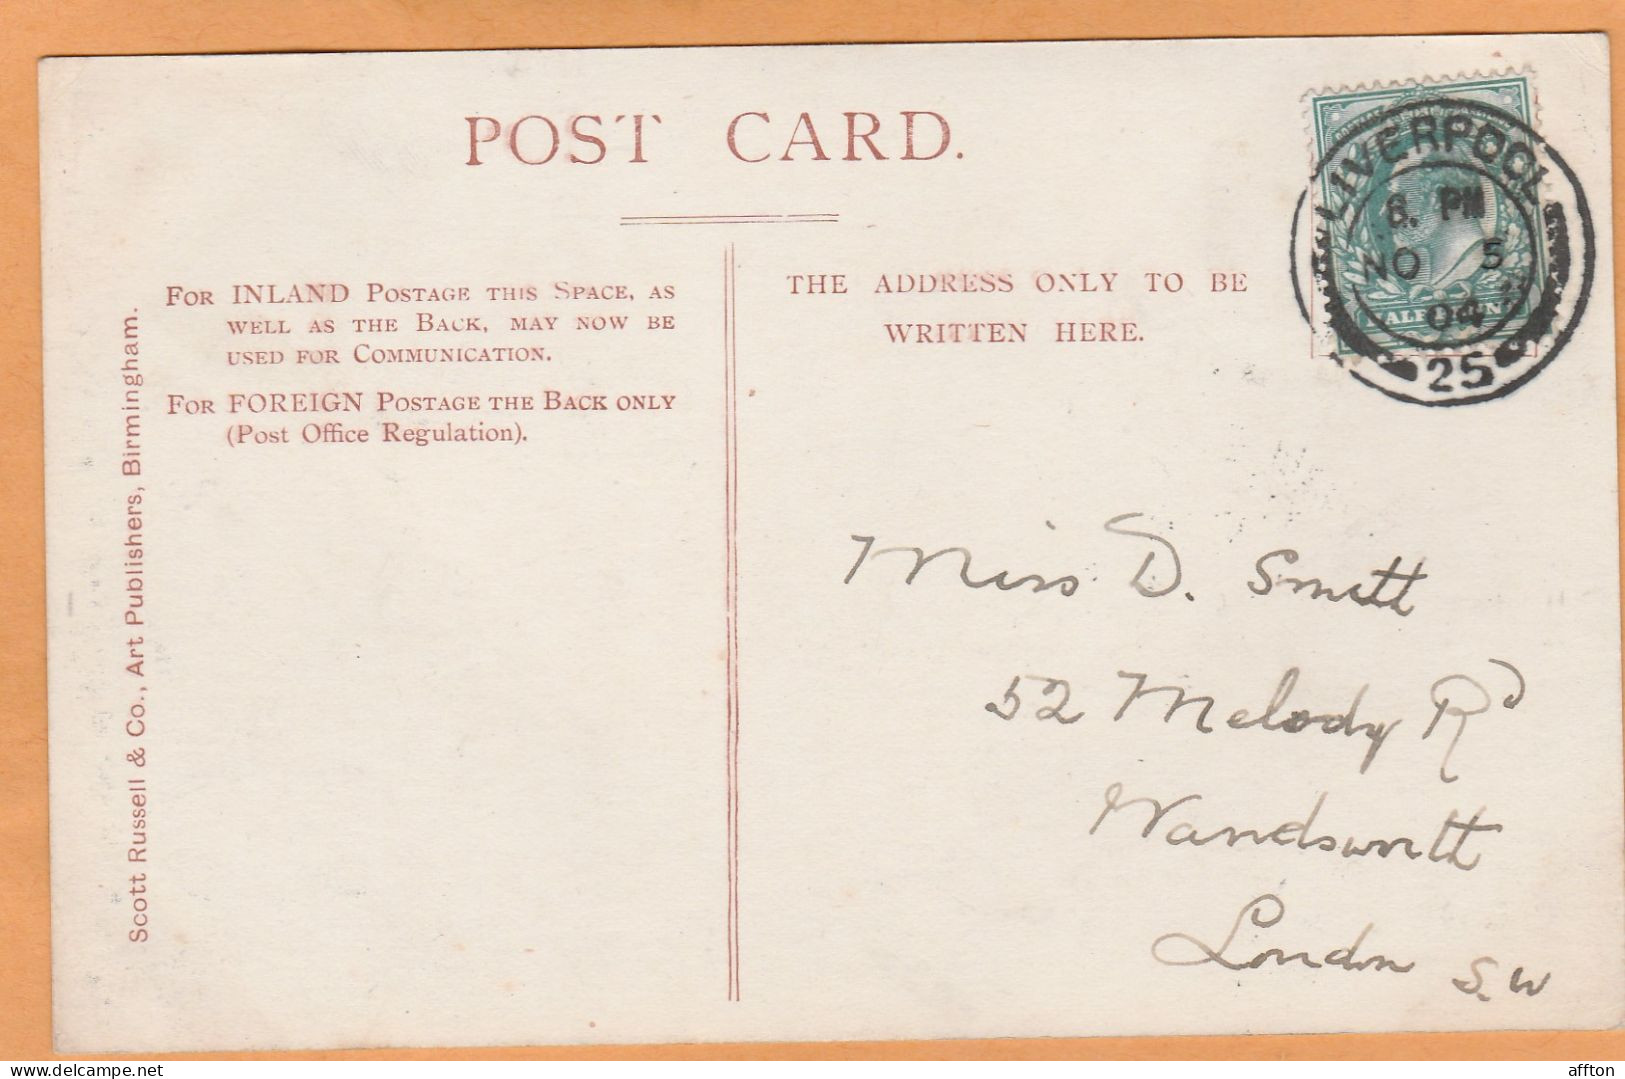 POST CARD.
LIVERPOOL
8. PM
NO 5
04
25
FOR INLAND POSTAGE THIS SPACE, AS
WELL AS THE BACK, MAY NOW BE
USED FOR COMMUNICATION.
FOR FOREIGN POSTAGE THE BACK ONLY
(Post Office Regulation).
THE ADDRESS ONLY TO BE
WRITTEN HERE.
Scott Russell & Co., Art Publishers, Birmingham.
Miss D. Smith
52 Melody Rd
Wandsworth
London S.W
affton